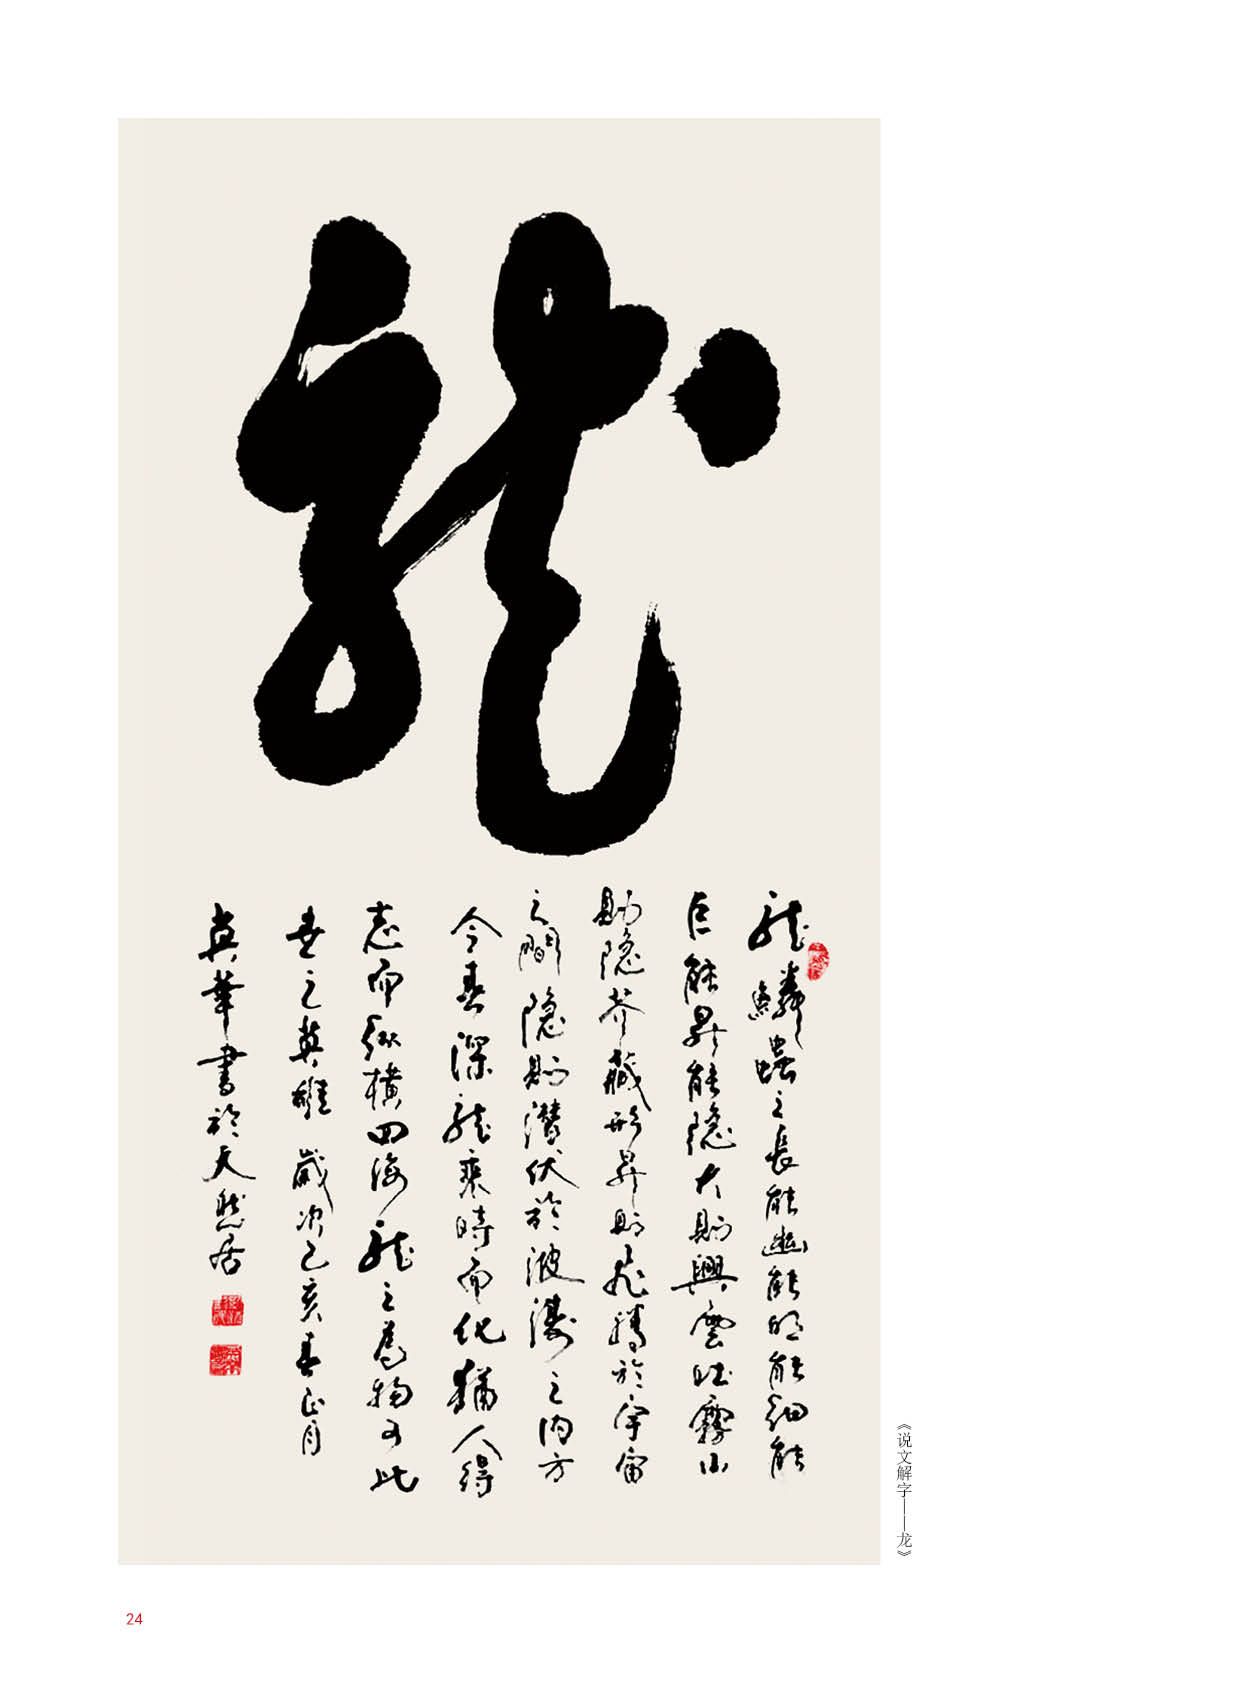 龍
龍鱗蟲之長能幽能明能細能
巨能昇能隐大則興雲吐霧小
則隐芥藏形昇則飛騰於宇宙
之間隐則潜伏於波濤之内方
今春深龍乘時而化猶人得
志而縱横四海龍之為物可比
世之英雄 歲次己亥春正月
英華書於天然居
《说文解字——龙》
24